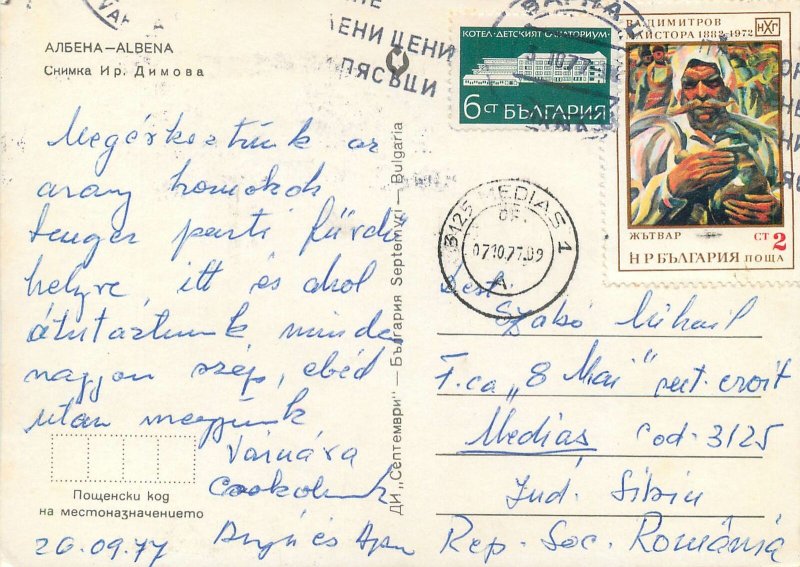 АЛБЕНА—ALBENA
Снимка Ир. Димова
ЕНИ ЦЕНИ
ПЯСЪЦИ
КОТЕЛ-ДЕТСКИЯТ САНАТОРИУМ
6 СТ БЪЛГАРИЯ
ВЛ.ДИМИТРОВ
МАЙСТОРА 1882-1972
НХГ
ЖЪТВАР
СТ 2
НР БЪЛГАРИЯ ПОЩА
3125 MEDIAS 1
OF.
07.10.77.09
A
Megérkeztünk az
arany homokok
tenger parti fürdő
helyre, itt és ahol
átutaztunk minden
nagyon szép, ebéd
után megyünk
Várnára
Csókolunk
és Apu
26.09.77
Пощенски код
на местоназначението
ДИ „Септември" — България Septemvri — Bulgaria
Szabó Mihail
F.ca „8 Mai" sect. croit
Medias Cod-3125
Jud. Sibiu
Rep. Soc. Română